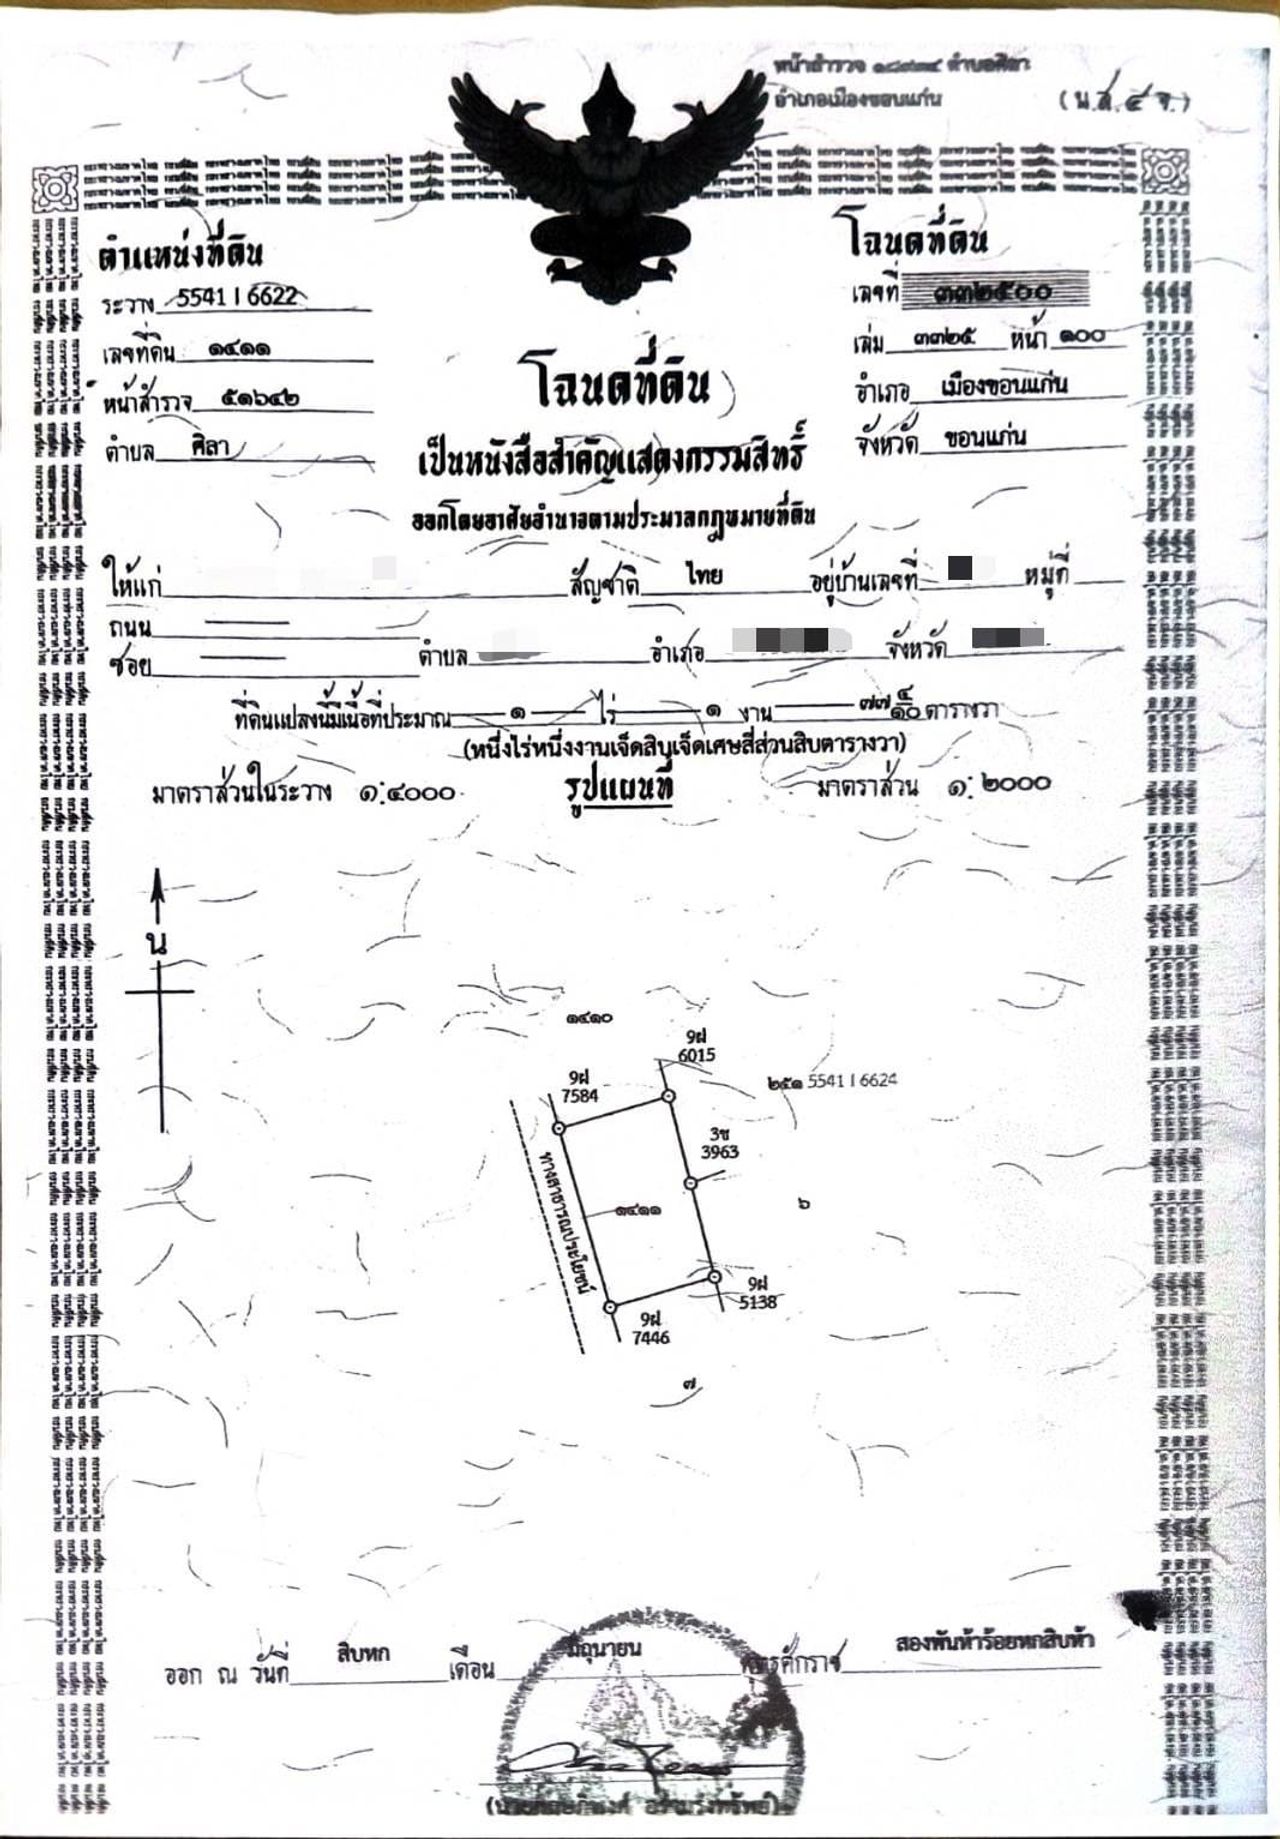 หน้าสำรวจ ๑๘๗๓๔ ตำบลศิลา
อำเภอเมืองขอนแก่น
(น.ส.๔ จ.)
ตำแหน่งที่ดิน
ระวาง 5541 I 6622
เลขที่ดิน ๑๔๑๑
หน้าสำรวจ ๕๑๖๔๒
ตำบล ศิลา
โฉนดที่ดิน
เลขที่ ๓๓๒๕๐๐
เล่ม ๓๓๒๕ หน้า ๑๐๐
อำเภอ เมืองขอนแก่น
จังหวัด ขอนแก่น
โฉนดที่ดิน
เป็นหนังสือสำคัญแสดงกรรมสิทธิ์
ออกโดยอาศัยอำนาจตามประมวลกฎหมายที่ดิน
ให้แก่ สัญชาติ ไทย อยู่บ้านเลขที่ หมู่ที่
ถนน
ซอย ตำบล อำเภอ จังหวัด
ที่ดินแปลงนี้มีเนื้อที่ประมาณ ๑ ไร่ ๑ งาน ๗๗ ๔/๑๐ ตารางวา
(หนึ่งไร่หนึ่งงานเจ็ดสิบเจ็ดเศษสี่ส่วนสิบตารางวา)
มาตราส่วนในระวาง ๑:๔๐๐๐ รูปแผนที่ มาตราส่วน ๑:๒๐๐๐
น
๑๔๑๐
9ฝ
6015
9ฝ
7584
๒๕๑ 5541 I 6624
3ข
3963
ทางสาธารณประโยชน์
๑๔๑๑
๖
9ฝ
5138
9ฝ
7446
๗
ออก ณ วันที่ สิบหก เดือน มิถุนายน พุทธศักราช สองพันห้าร้อยหกสิบห้า